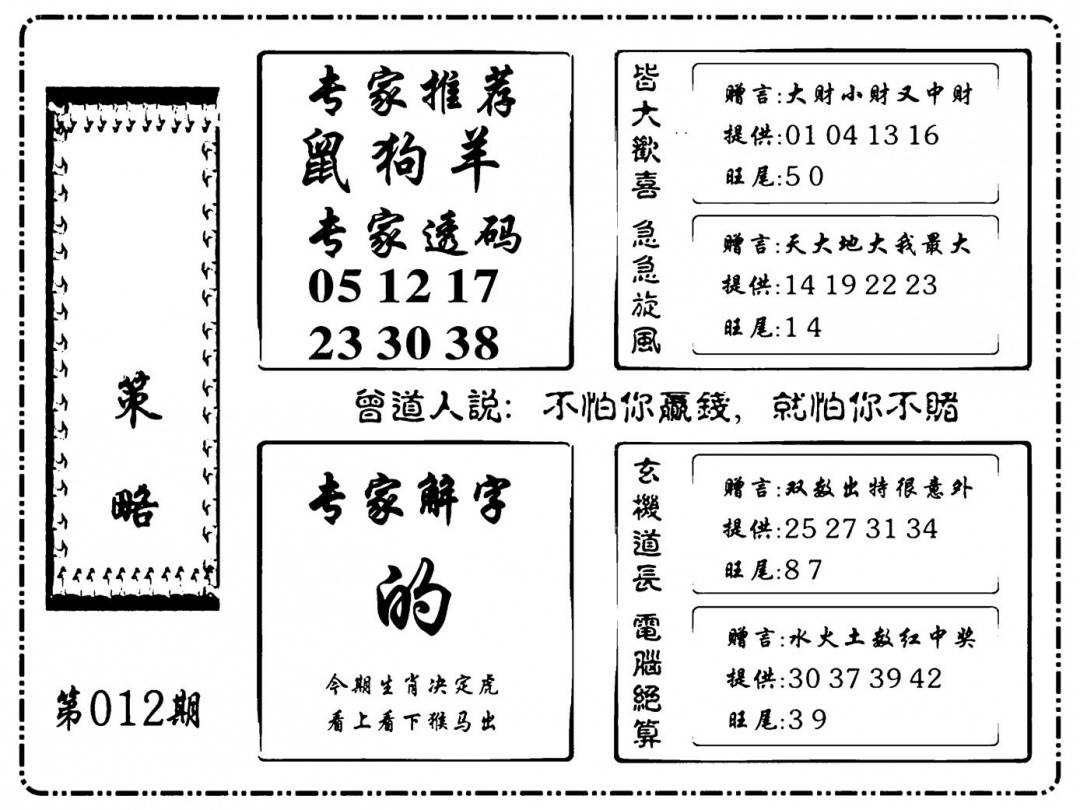 策
略
第012期
专家推荐
鼠狗羊
专家透码
05 12 17
23 30 38
皆大歡喜
赠言:大财小财又中财
提供:01 04 13 16
旺尾:5 0
急急旋風
赠言:天大地大我最大
提供:14 19 22 23
旺尾:1 4
曾道人説: 不怕你贏錢, 就怕你不賭
专家解字
的
今期生肖决定虎
看上看下猴马出
玄機道長
赠言:双数出特很意外
提供:25 27 31 34
旺尾:8 7
電腦絕算
赠言:水火土数红中奖
提供:30 37 39 42
旺尾:3 9